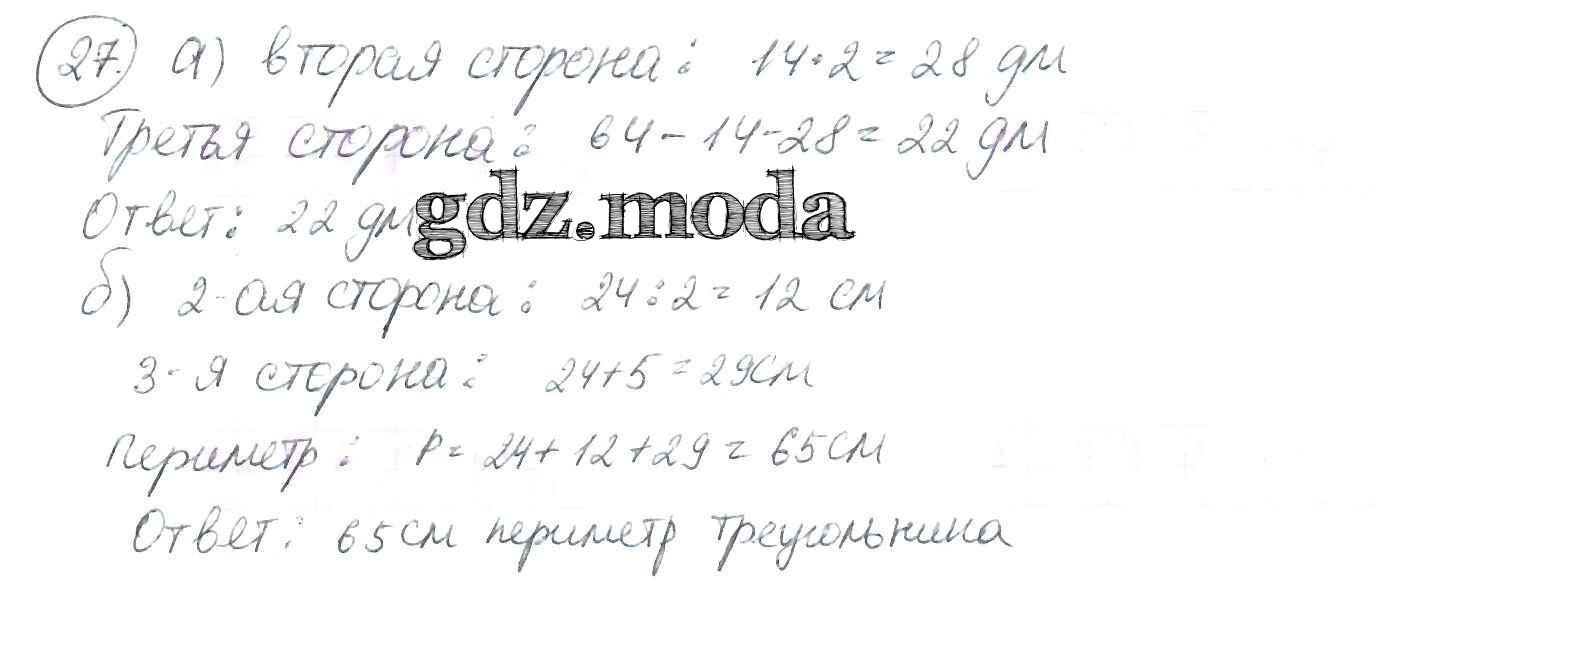 27. а) вторая сторона: 14·2=28 дм
Третья сторона: 64-14-28=22 дм
Ответ: 22 дм
gdz.moda
б) 2-ая сторона: 24:2=12 см
3-я сторона: 24+5=29см
Периметр: P=24+12+29=65см
Ответ: 65см периметр треугольника